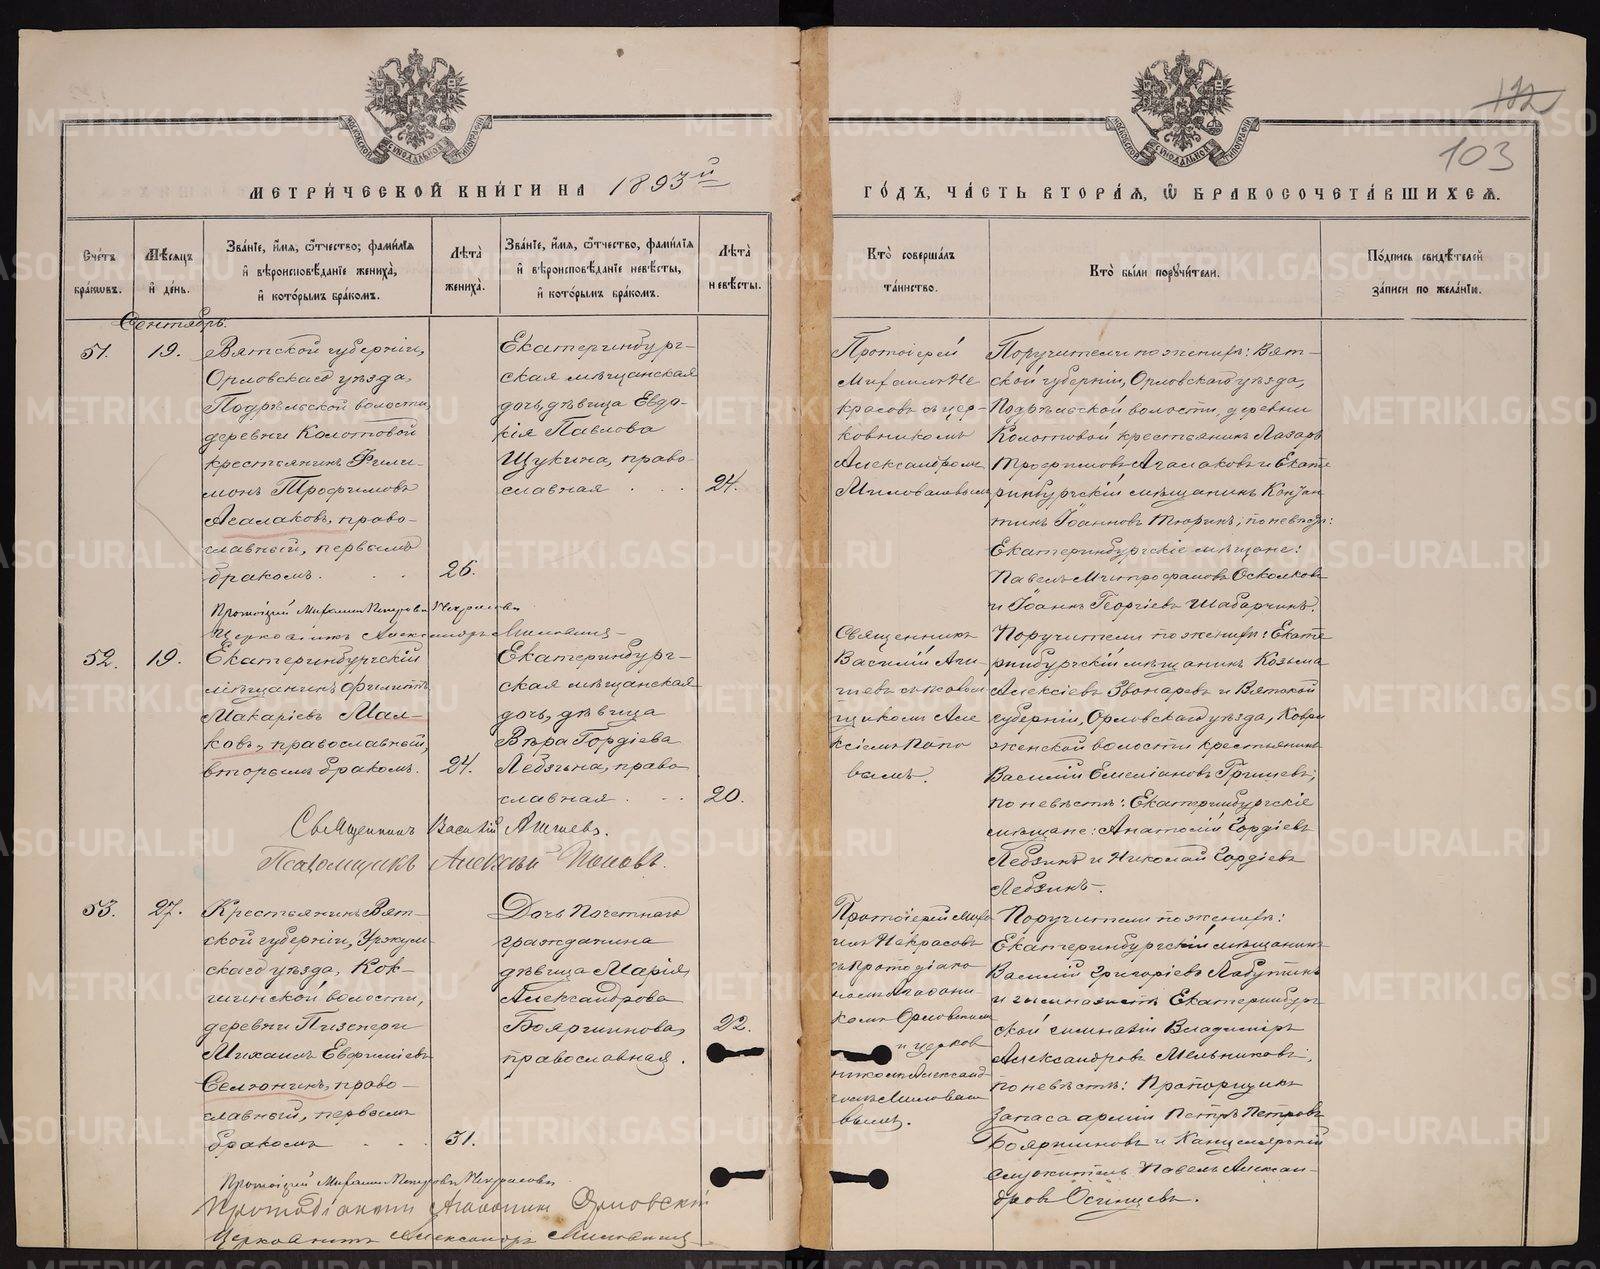 112
103
МЕТРИ́ЧЕСКОЙ КНИ́ГИ НА 1893й
ГО́ДЪ, ЧА́СТЬ ВТОРА́Ѧ, Ѽ БРАКОСОЧЕТА́ВШИХСѦ.
Сче́тъ бра́кѡвъ.
Мѣ́сѧцъ и҆ де́нь.
Зва́нїе, и҆́мѧ, ѻ҆́тчество, фами́лїѧ и҆ вѣроисповѣ́данїе жениха̀, и҆ кото́рымъ бра́комъ.
Лѣта̀ жениха̀.
Зва́нїе, и҆́мѧ, ѻ҆́тчество, фами́лїѧ и҆ вѣроисповѣ́данїе невѣ́сты, и҆ кото́рымъ бра́комъ.
Лѣта̀ невѣ́сты.
Кто̀ соверша́лъ та́инство.
Кто̀ бы́ли порꙋчи́тели.
По́дпись свидѣ́телей за́писи по жела́нїю.
Сентябрь.
51.
19.
Вятской губерніи,
Орловскаго уѣзда,
Подрельской волости,
деревни Колотовой
крестьянинъ Фили-
монъ Трофимовъ
Агалаковъ, право-
славный, первымъ
бракомъ.
26.
Екатеринбург-
ская мѣщанская
дочь, дѣвица Евдо-
кія Павлова
Щукина, право-
славная
24.
Протоіерей
Михаилъ Не
красовъ съ цер-
ковникомъ
Александромъ
Миловановымъ
Поручители по женихѣ: Вят-
ской губерніи, Орловскаго уѣзда,
Подрельской волости, деревни
Колотовой крестьянинъ Лазарь
Трофимовъ Агалаковъ и Екате
ринбургскій мѣщанинъ Констан
тинъ Іоанновъ Тюринъ; по невѣстѣ:
Екатеринбургскіе мѣщане:
Павелъ Митрофановъ Осколковъ
и Іоаннъ Георгіевъ Шабарчинъ.
Протоіерей Михаилъ Петровъ Некрасовъ
Церковникъ Александръ Миловановъ
52.
19.
Екатеринбургскій
мѣщанинъ Филиппъ
Макаріевъ Мал-
ковъ, православный,
вторымъ бракомъ.
24.
Екатеринбург-
ская мѣщанская
дочь, дѣвица
Вѣра Гордіева
Лебзина, право
славная
20.
Священникъ
Василій Аги-
шевъ съ псалом
щикомъ Але
ксіемъ Попо
вымъ.
Поручители по женихѣ: Екате
ринбургскій мѣщанинъ Козьма
Алексіевъ Звонаревъ и Вятской
губерніи, Орловскаго уѣзда, Коври
женской волости крестьянинъ
Василій Емеліановъ Гришевъ;
по невѣстѣ: Екатеринбургскіе
мѣщане: Анатолій Гордіевъ
Лебзинъ и Николай Гордіевъ
Лебзинъ.
Священникъ Василій Агишевъ.
Псаломщикъ Алексѣй Поповъ.
53.
27.
Крестьянинъ Вят-
ской губерніи, Уржум-
скаго уѣзда, Кок-
шинской волости,
деревни Пизнери
Михаилъ Евфиміевъ
Селюнинъ, право-
славный, первымъ
бракомъ
31.
Дочь Почетнаго
гражданина
дѣвица Марія
Александрова
Бояршинова,
православная.
22.
Протоіерей Миха
илъ Некрасовъ
съ Протодіако
номъ Агафани
комъ Орловскимъ
и церков
никомъ Александ
ромъ Миловано
вымъ.
Поручители по женихѣ:
Екатеринбургскій мѣщанинъ
Василій Григоріевъ Лабутинъ
и гимназистъ Екатеринбург
ской гимназіи Владиміръ
Александровъ Мельниковъ;
по невѣстѣ: Прапорщикъ
запаса арміи Петръ Петровъ
Бояршиновъ и Канцелярскій
служитель Павелъ Алексан-
дровъ Осинцевъ.
Протоіерей Михаилъ Петровъ Некрасовъ
Протодіаконъ Агафоникъ Орловскій
Церковникъ Александръ Миловановъ
METRIKI.GASO-URAL.RU